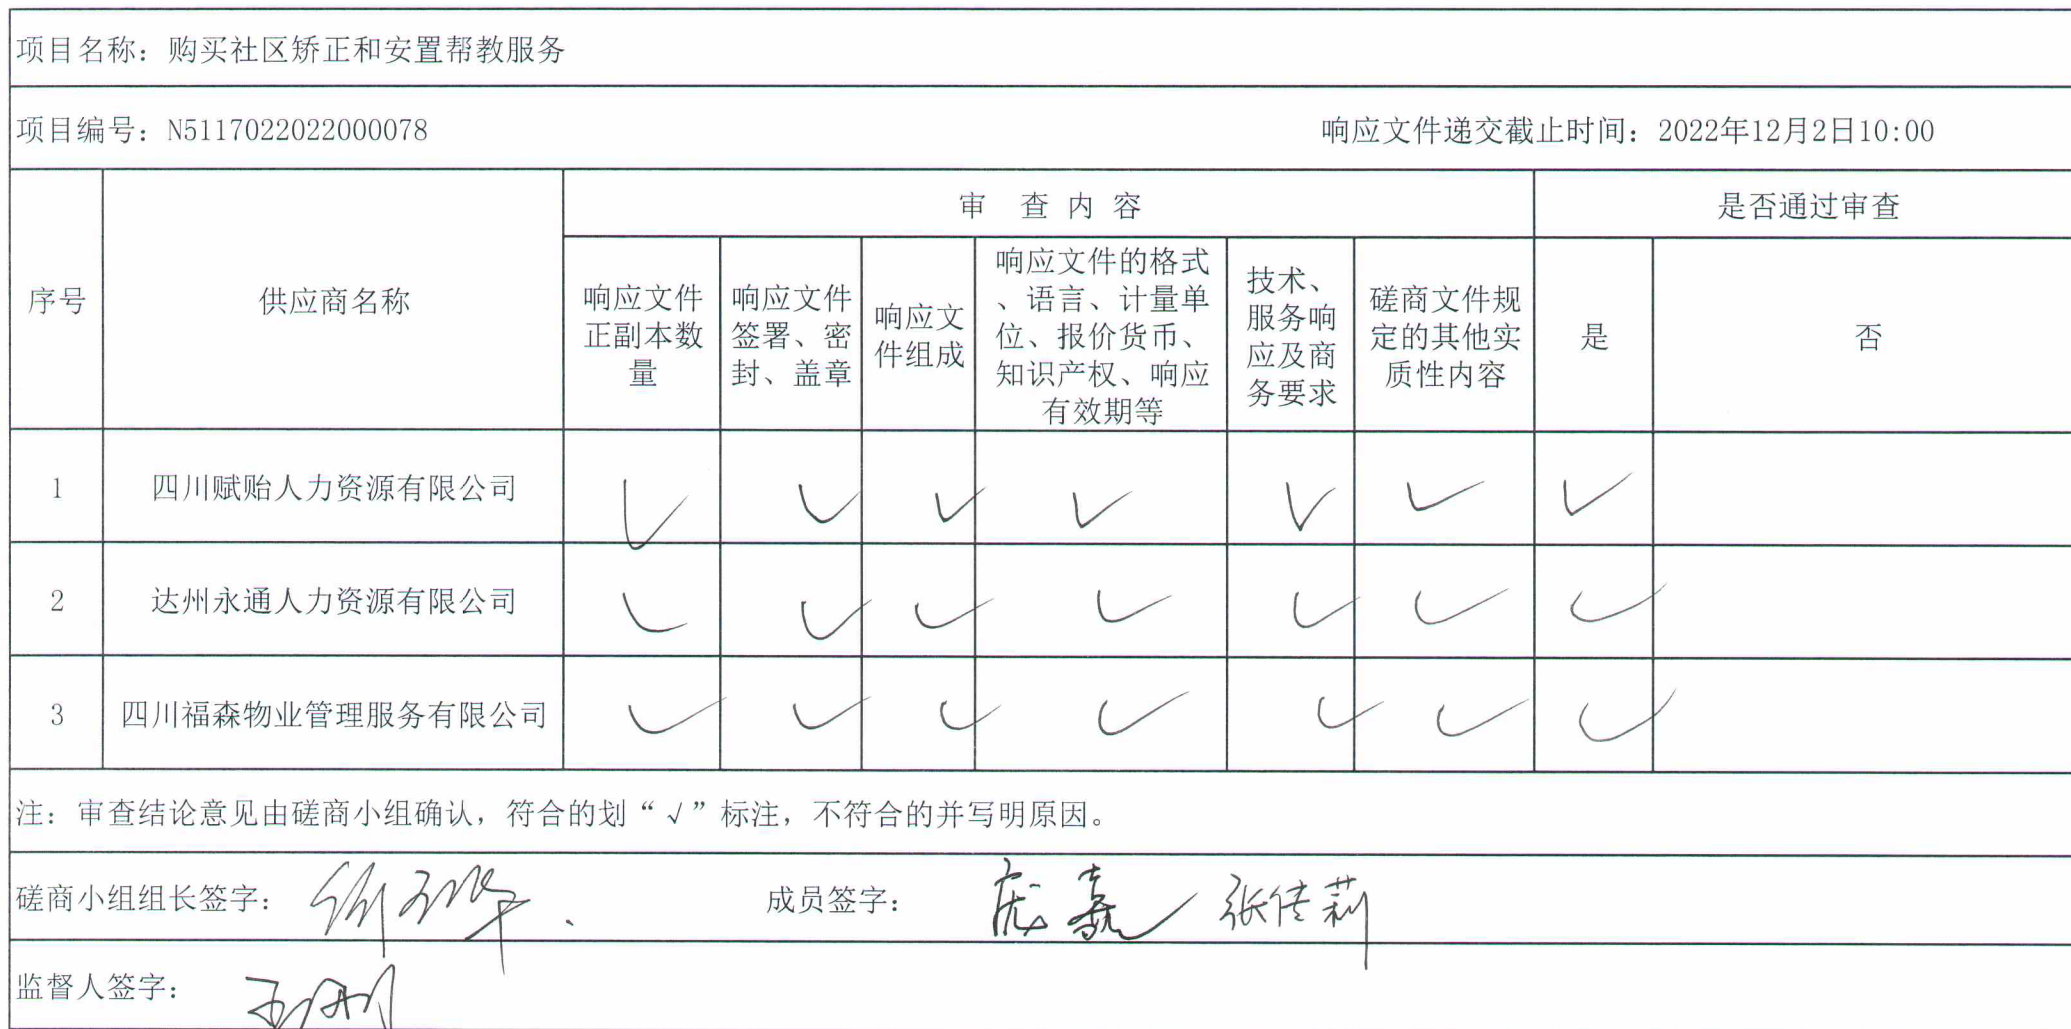 项目名称：购买社区矫正和安置帮教服务
项目编号：N5117022022000078 响应文件递交截止时间：2022年12月2日10:00
序号 供应商名称 审 查 内 容 是否通过审查
响应文件
正副本数
量
响应文件
签署、密
封、盖章
响应文
件组成
响应文件的格式
、语言、计量单
位、报价货币、
知识产权、响应
有效期等
技术、
服务响
应及商
务要求
磋商文件规
定的其他实
质性内容
是 否
1 四川赋贻人力资源有限公司 ✓ ✓ ✓ ✓ ✓ ✓ ✓
2 达州永通人力资源有限公司 ✓ ✓ ✓ ✓ ✓ ✓ ✓
3 四川福森物业管理服务有限公司 ✓ ✓ ✓ ✓ ✓ ✓ ✓
注：审查结论意见由磋商小组确认，符合的划“√”标注，不符合的并写明原因。
磋商小组组长签字： 成员签字： 张佳莉
监督人签字：